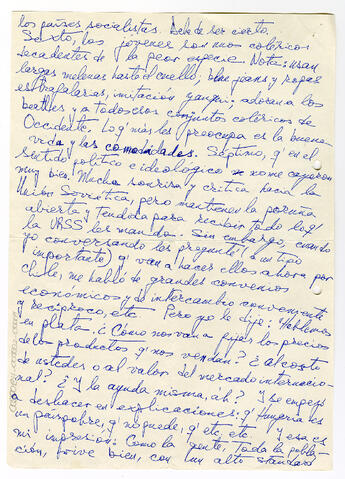 los países socialistas. Debe de ser cierto.
Sexto, los jóvenes son mon coléricos
decadentes de la peor especie. Nota: usan
largas melenas hasta el cuello, blue jeans y ropas
estrafalarias, imitación yanqui; adoran a los
beatles y a todos los conjuntos coléricos de
Occidente. Lo q' más les preocupa es la buena
vida y las comodidades. Séptimo, q' en el
sentido político e ideológico no me cayeron
muy bien. Mucha sonrisa y crítica hacia la
Unión Soviética, pero mantienen la
abierta y tendida para recibir todo lo q'
la URSS les manda. Sin embargo, cuando
yo conversando les pregunté (a un tipo
importante) q' van a hacer ellos ahora por
Chile, me habló de grandes convenios
económicos y de intercambio conveniente
y recíproco, etc. Pero yo le dije: Hablemos
en plata. ¿Cómo nos van a fijar los precios
de los productos q' nos vendan? ¿Al costo
de ustedes o al valor del mercado internacio-
nal? ¿Y la ayuda misma, áh? Y se empezó
a deshacer en explicaciones; q' Hungría es
un país pobre, q' no puede, q' etc, etc. Y esa es
mi impresión: Como la gente, toda la pobla-
ción, vive bien, con un alto standard